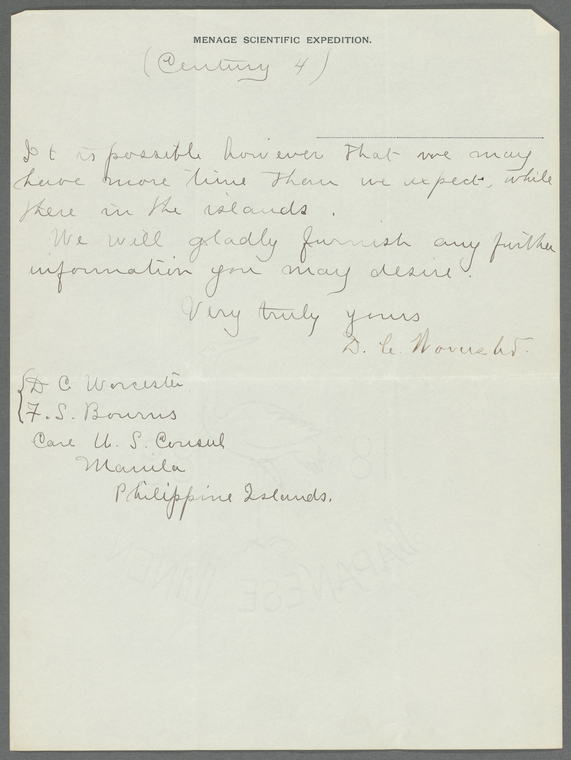 MENAGE SCIENTIFIC EXPEDITION.
(Century 4)
It is possible however that we may
have more time than we expect, while
there in the islands.
We will gladly furnish any further
information you may desire.
Very truly yours
D. C. Worcester.
D C Worcester
F. S. Bourns
Care U. S. Consul
Manila
Philippine Islands.
18
JAPANESE LINEN